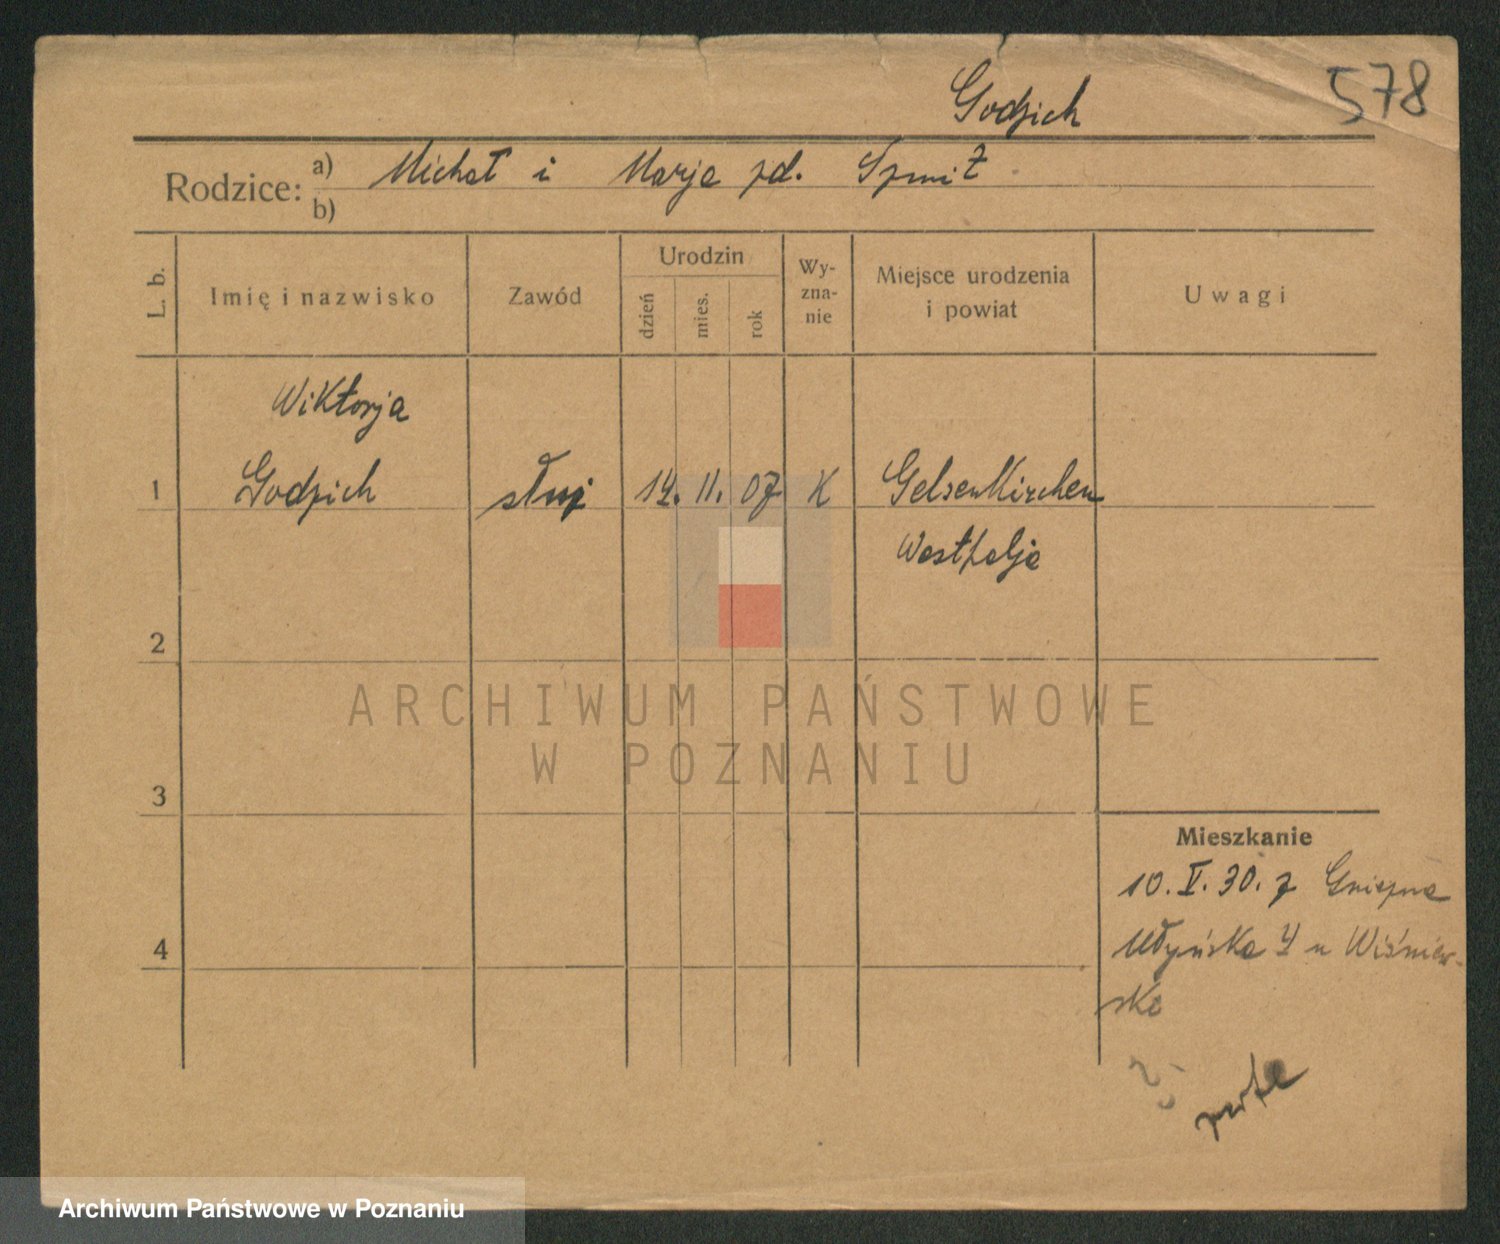 Godzich
578
Rodzice: a) Michał i Marja zd. Szmit
b)
L. b.
Imię i nazwisko
Zawód
Urodzin
dzień
mies.
rok
Wy-
zna-
nie
Miejsce urodzenia
i powiat
Uwagi
Wiktorja
1 Godzich służ 14. 11. 07 K Gelsenkirchen
Westfalja
2
ARCHIWUM PAŃSTWOWE
W POZNANIU
3
Mieszkanie
10. V. 30. z Gniezna
4 u Wiśniew-
4
ska
Archiwum Państwowe w Poznaniu